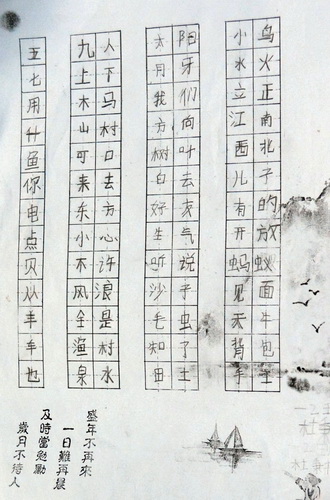 五
七
用
什
鱼
你
电
点
贝
从
羊
车
也
九人
上下
木马
山村
可口
来去
东方
小心
不许
风浪
全是
渔村
泉水
太阳
月牙
我们
方向
树叶
白云
好友
生气
听说
沙子
毛虫
知了
田
小鸟
水火
立正
江南
西北
儿子
有的
开放
蚂蚁
见面
天牛
背包
手
盛年不再來
一日難再晨
及時當勉勵
歲月不待人